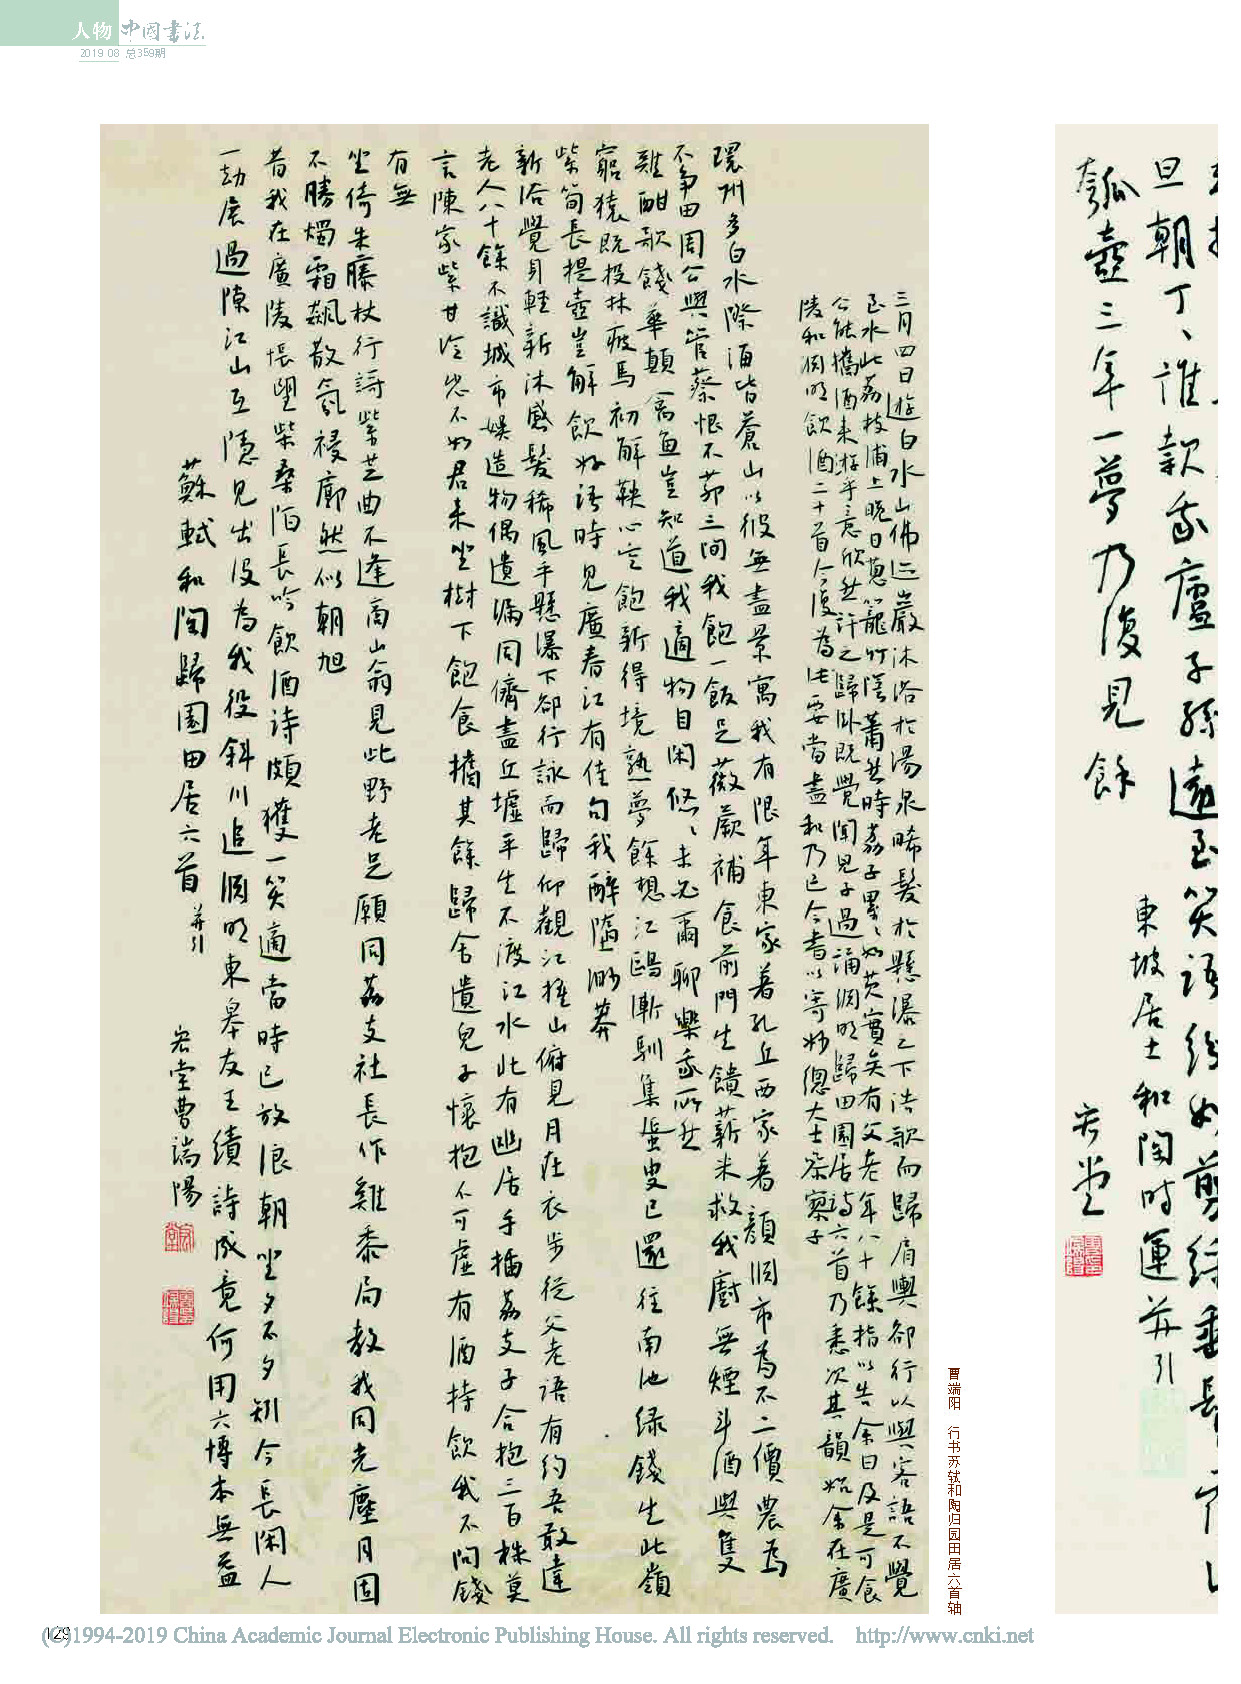 人物 中国书法
2019 08 总359期
旦朝丁、誰款我廬子孫遠至笑語紛如剪綵垂髫
瓠壺三年一夢乃復見餘
東坡居士和陶時運并引
宏堂
三月四日遊白水山佛迹巖沐浴於湯泉晞髮於懸瀑之下浩歌而歸肩輿卻行以與客語不覺
至水北荔枝浦上晚日蔥籠竹陰蕭然時荔子纍、如芡實矣有父老年八十餘指以告余曰及是可食
公能攜酒來游乎意欣然許之歸卧既覺聞兒子過誦淵明歸田園居詩六首乃悉次其韻始余在廣
陵和淵明飲酒二十首今復為此要當盡和乃已今書以寄妙總大士參寥子
環州多白水際海皆蒼山以彼無盡景寓我有限年東家著孔丘西家著顏淵市為不二價農為
不爭田周公與管蔡恨不茆三間我飽一飯足薇蕨補食前門生饋薪米救我廚無煙斗酒與隻
雞酣歌餞華顛禽魚豈知道我適物自閑悠、未必爾聊樂我所然
窮猿既投林疲馬初解鞅心空飽新得境熟夢餘想江鷗漸馴集蜑叟已還往南池綠錢生北嶺
紫筍長提壺豈解飲好語時見廣春江有佳句我醉墮渺莽
新浴覺身輕新沐感髮稀風乎懸瀑下卻行詠而歸仰觀江搖山俯見月在衣步從父老語有約吾敢違
老人八十餘不識城市娛造物偶遺漏同儕盡丘墟平生不渡江水北有幽居手插荔支子合抱三百株莫
言陳家紫甘冷恐不如君來坐樹下飽食攜其餘歸舍遺兒子懷抱不可虛有酒持飲我不問錢
有無
坐倚朱藤杖行謌紫芝曲不逢商山翁見此野老足願同荔支社長作雞黍局教我同光塵月固
不勝燭霜飆散氛祲廓然似朝旭
昔我在廣陵悵望柴桑陌長吟飲酒詩頗獲一笑適當時已放浪朝坐夕不夕矧今長閑人
一劫展過隙江山互隱見出沒為我役斜川追淵明東皋友王績詩成竟何用六博本無益
蘇軾和陶歸園田居六首并引
宏堂曹端陽
曹端阳 行书苏轼和陶归园田居六首轴
129
(C)1994-2019 China Academic Journal Electronic Publishing House. All rights reserved. http://www.cnki.net